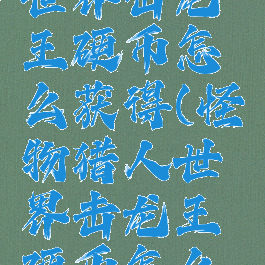 世界击龙
王硬币怎
么获得(怪
物猎人世
界击龙王
硬币怎么